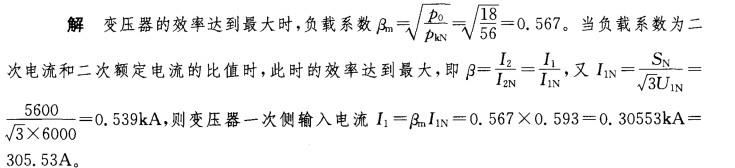 解 变压器的效率达到最大时,负载系数 βm=√(p0/pkN)=√(18/56)=0.567。当负载系数为二
次电流和二次额定电流的比值时,此时的效率达到最大,即 β=I2/I2N=I1/I1N,又 I1N=SN/(√3U1N)=
5600/(√3×6000)=0.539kA,则变压器一次侧输入电流 I1=βmI1N=0.567×0.593=0.30553kA=
305.53A。